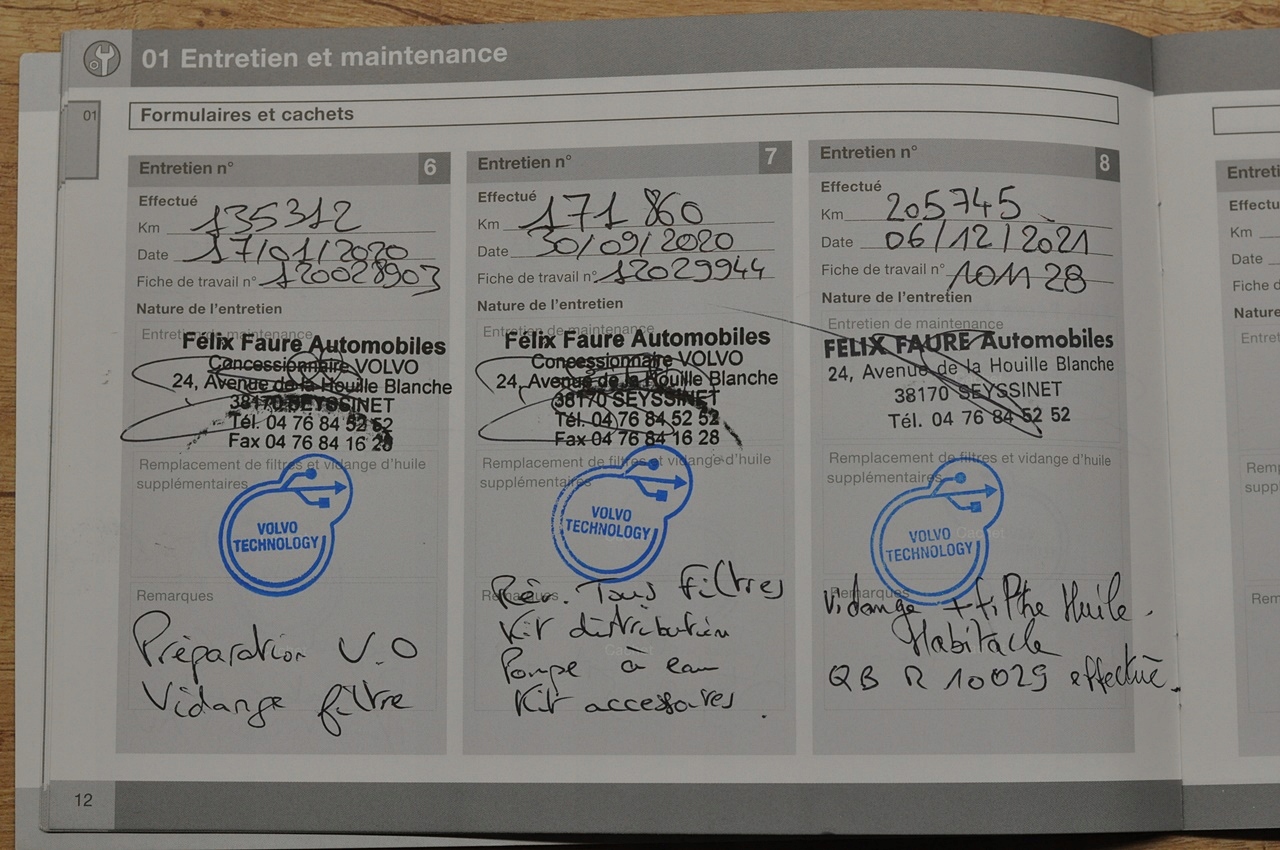 01 Entretien et maintenance
01
Formulaires et cachets
Entretien n° 6
Effectué
Km 135312
Date 17/01/2020
Fiche de travail n° 120028903
Nature de l'entretien
Entretien de maintenance
Félix Faure Automobiles
Concessionnaire VOLVO
24, Avenue de la Houille Blanche
38170 SEYSSINET
Tél. 04 76 84 52 52
Fax 04 76 84 16 28
Remplacement de filtres et vidange d'huile
supplémentaires
VOLVO
TECHNOLOGY
Remarques
Préparation V.O
Vidange filtre
Entretien n° 7
Effectué
Km 171 860
Date 30/09/2020
Fiche de travail n° 12029944
Nature de l'entretien
Entretien de maintenance
Félix Faure Automobiles
Concessionnaire VOLVO
24, Avenue de la Houille Blanche
38170 SEYSSINET
Tél. 04 76 84 52 52
Fax 04 76 84 16 28
Remplacement de filtres et vidange d'huile
supplémentaires
VOLVO
TECHNOLOGY
Remarques
Rév. Tous filtres
Kit distribution
Cachet
Pompe à eau
Kit accessoires.
Entretien n° 8
Effectué
Km 205745
Date 06/12/2021
Fiche de travail n° 101128
Nature de l'entretien
Entretien de maintenance
FELIX FAURE Automobiles
24, Avenue de la Houille Blanche
38170 SEYSSINET
Tél. 04 76 84 52 52
Remplacement de filtres et vidange d'huile
supplémentaires
Cachet
VOLVO
TECHNOLOGY
Remarques
Vidange + filtre Huile.
Habitacle
QB R 10029 effectué.
12
Entreti
Effectu
Km
Date
Fiche d
Nature
Entreti
Remp
suppl
Rem